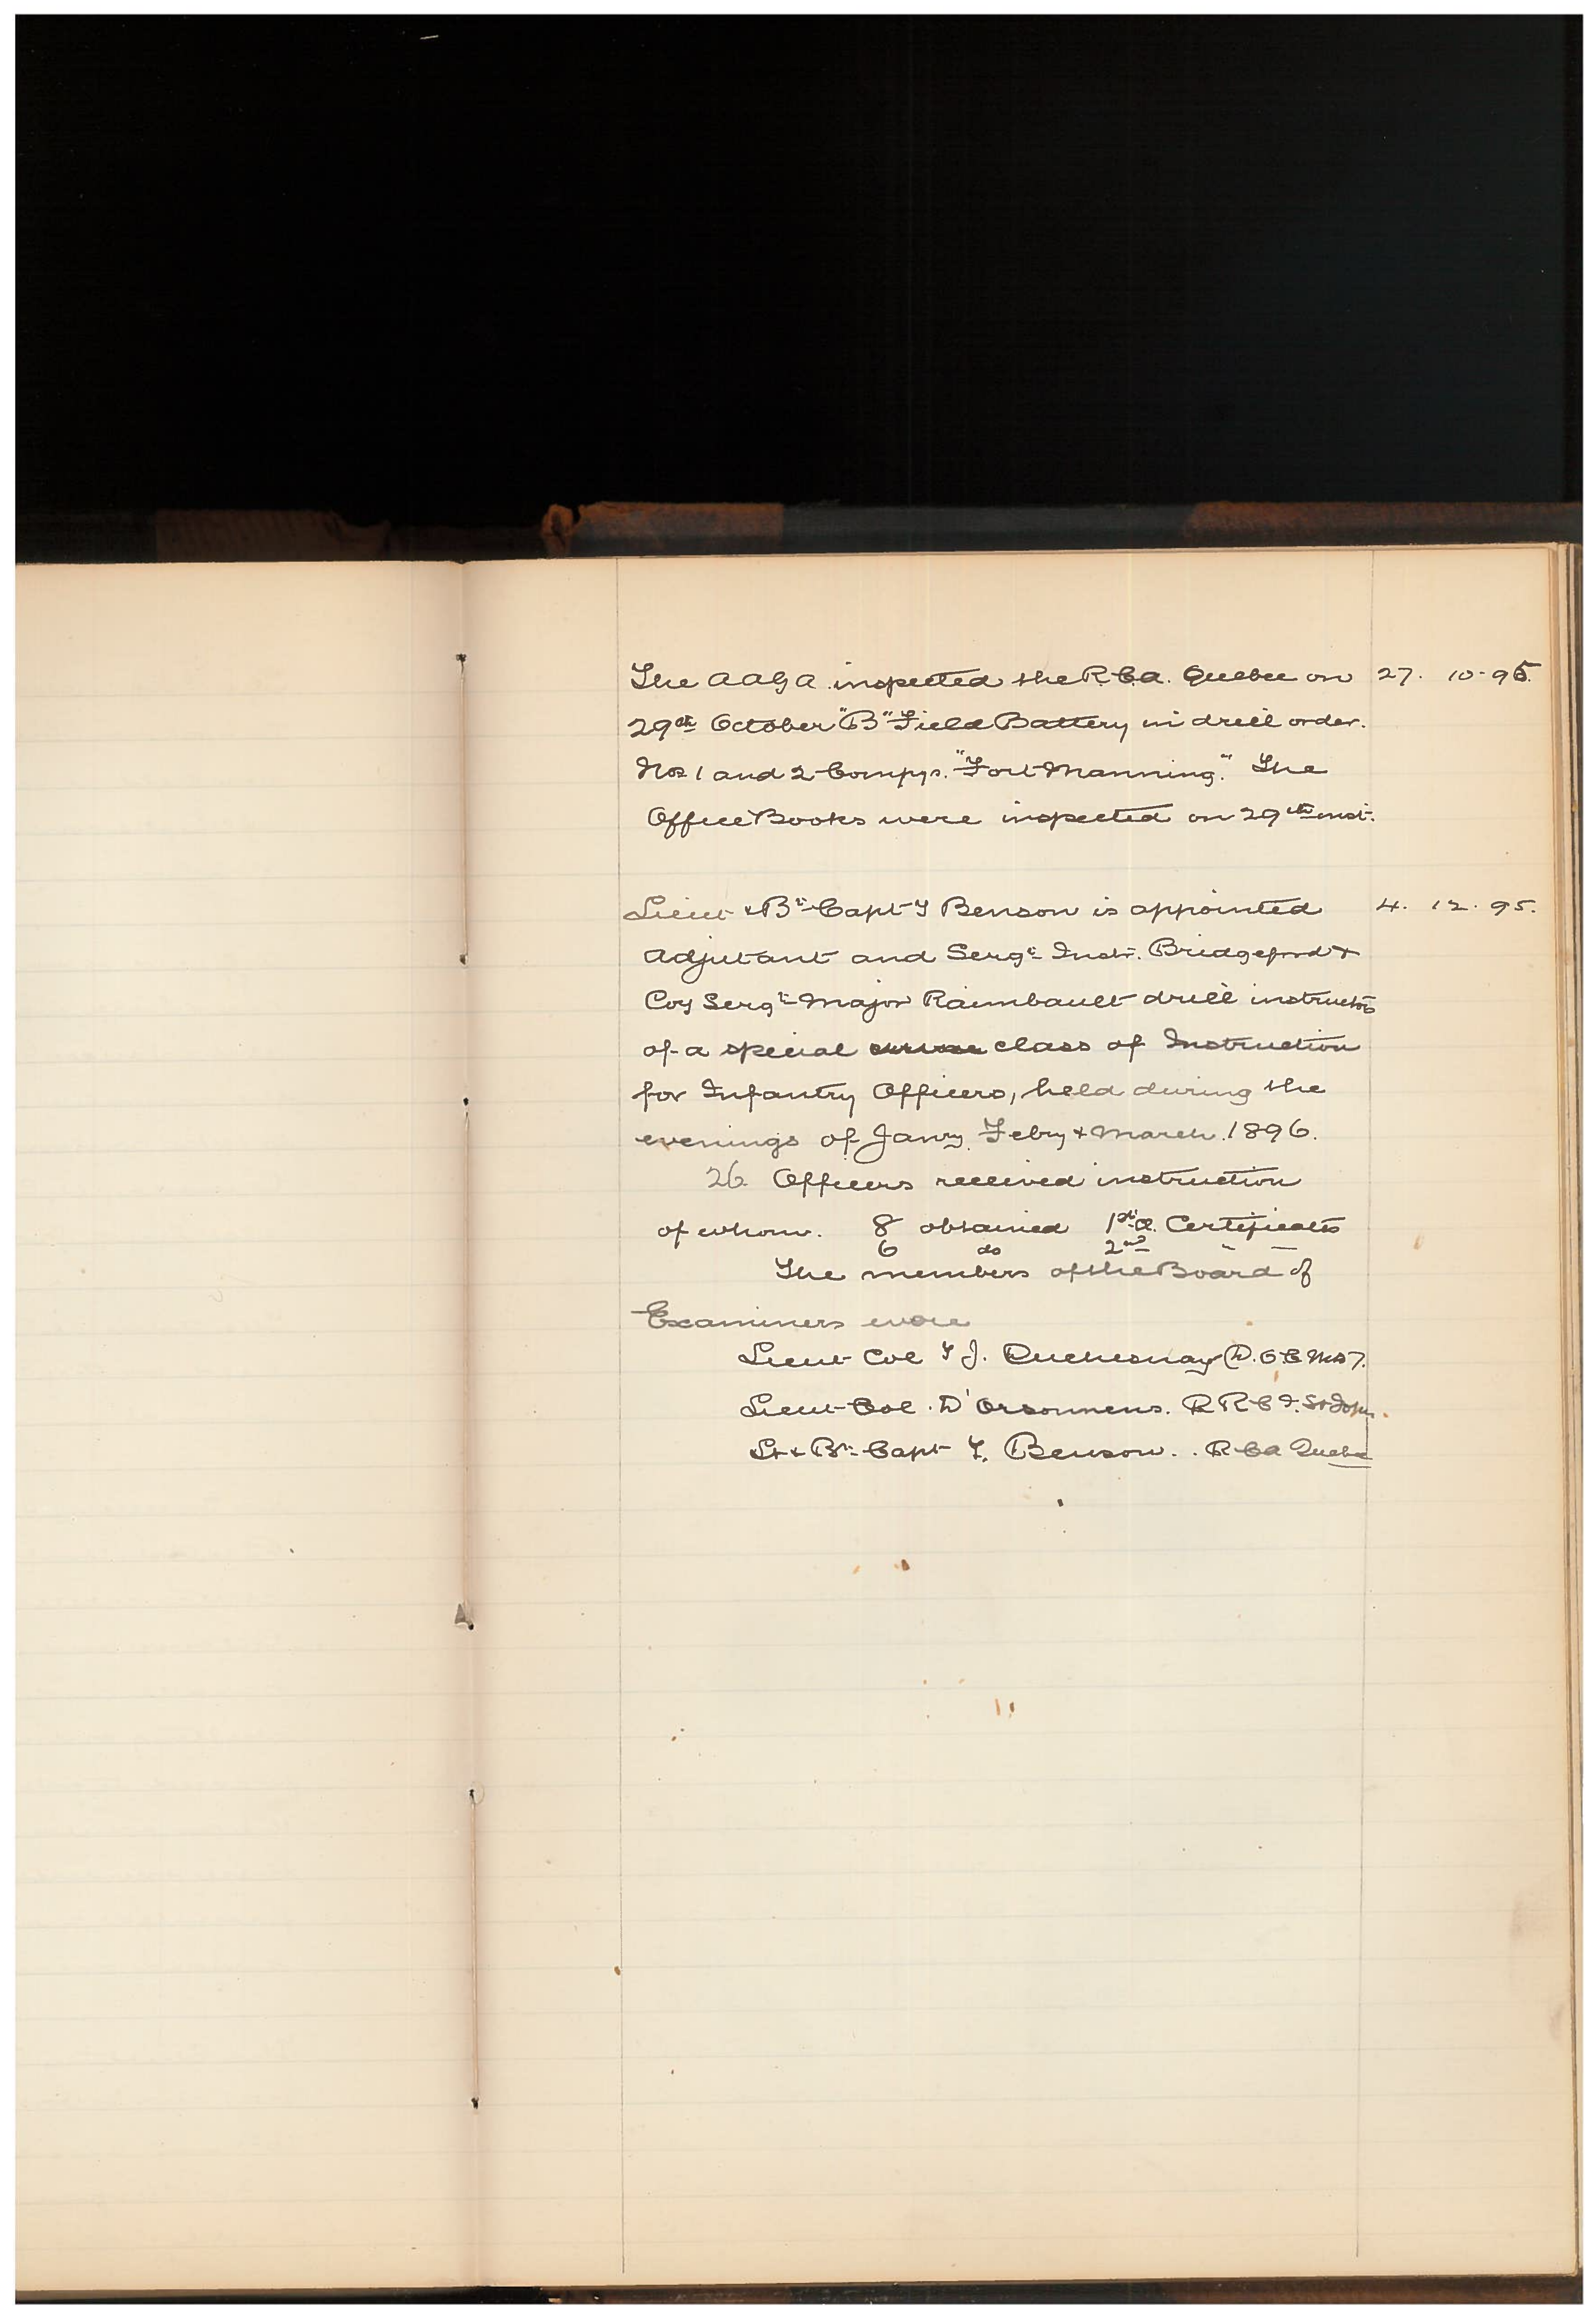 The AAGA inspected the R.C.A. Quebec on 27. 10-95.
29th October "B" Field Battery in drill order.
Nos 1 and 2 Compys. "Fort Manning." The
Office Books were inspected on 29th inst.
Lieut & Bt Capt F Benson is appointed 4. 12. 95.
Adjutant and Sergt Instr. Bridgeford &
Coy Sergt-Major Raimbault drill instructors
of a special class of Instruction
for Infantry Officers, held during the
evenings of Janry. Febry & March 1896.
26 Officers received instruction
of whom. 8 obtained 1st Cl. Certificates
6 do 2nd " "
The members of the Board of
Examiners were
Lieut Col T J. Duchesnay D.O.C. MD 7.
Lieut-Col. D'Orsonnens. R R C I. St Johns.
Lt & Bt Capt F. Benson. R C A Quebec